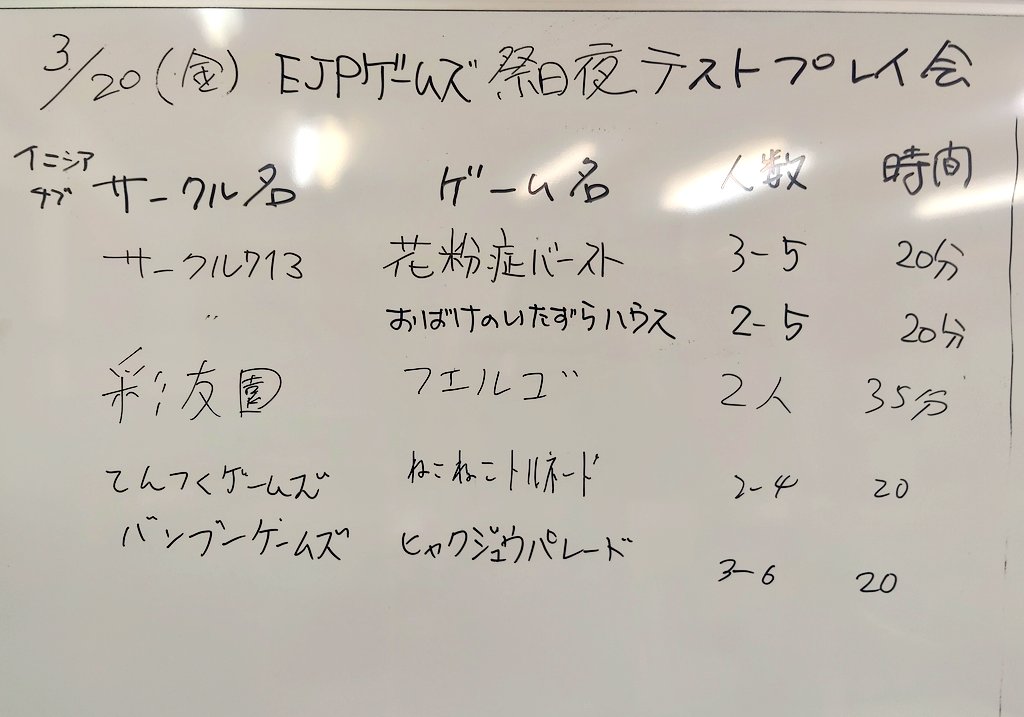 3/20(金) EJPゲームズ 祭日夜 テストプレイ会
イニシアチブ サークル名 ゲーム名 人数 時間
サークル713 花粉症バースト 3-5 20分
〃 おばけのいたずらハウス 2-5 20分
彩友園 フエルゴ 2人 35分
てんつくゲームズ ねこねこトルネード 2-4 20
バンブーゲームズ ヒャクジュウパレード 3-6 20